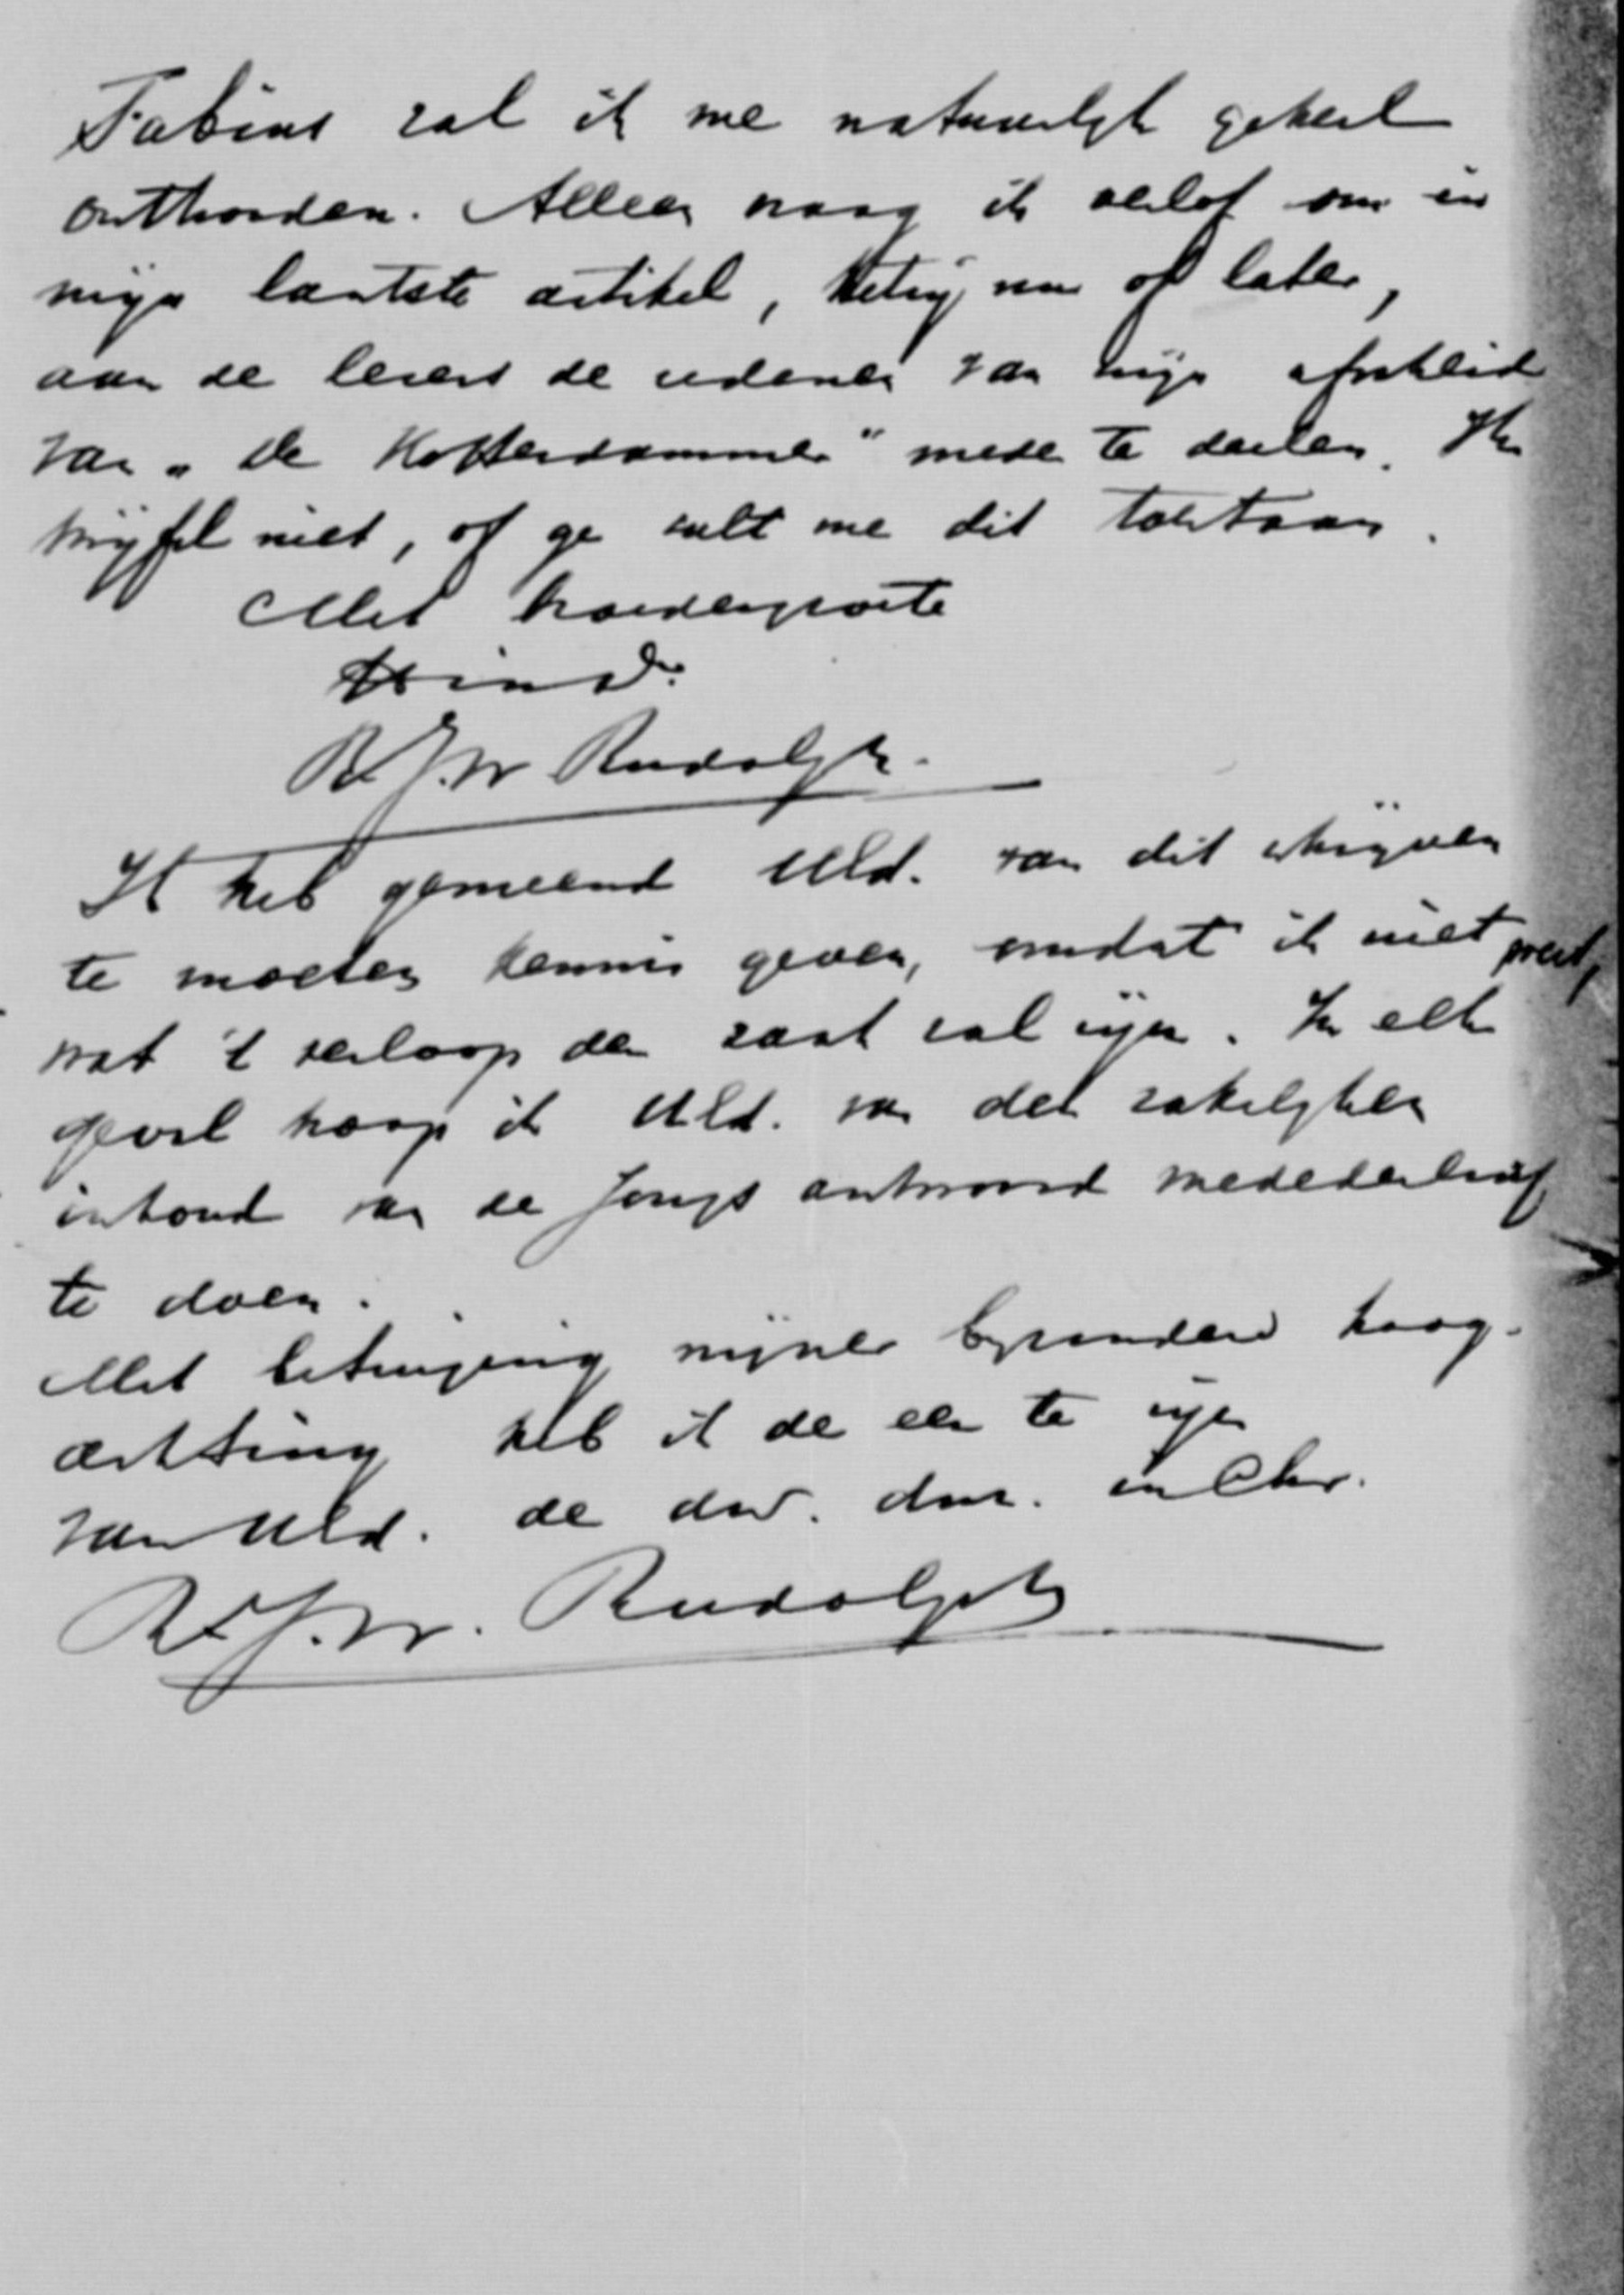 Fabius zal ik me natuurlijk geheel
onthouden. Alleen vraag ik verlof om in
mijn laatste artikel, hetzij nu of later,
aan de lezers de redenen van mijn afscheid
van „De Rotterdammer" mede te deelen. Ik
twijfel niet, of ge zult me dit toestaan.
Met broedergroete
R.J.W. Rudolph.
Ik heb gemeend UEd. van dit schrijven
te moeten kennis geven, omdat ik niet weet,
wat 't verloop der zaak zal zijn. In elk
geval hoop ik UEd. van den zakelijken
inhoud van de Jong's antwoord mededeeling
te doen.
Met betuiging mijner bijzondere hoog-
achting heb ik de eer te zijn
van UEd. de dw. dnr. in Chr.
R.J.W. Rudolph